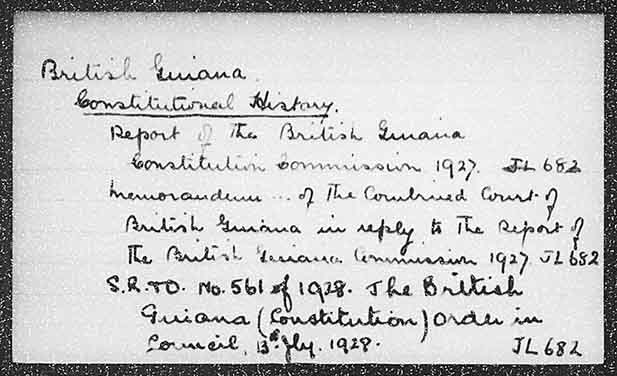 British Guiana.
Constitutional History.
Report of the British Guiana
Constitution Commission 1927. JL 682
Memorandum ... of the Combined Court of
British Guiana in reply to the Report of
the British Guiana Commission 1927 JL 682
S.R.&O. No. 561 of 1928. The British
Guiana (Constitution) Order in
Council, 13th Jly. 1928. JL 682